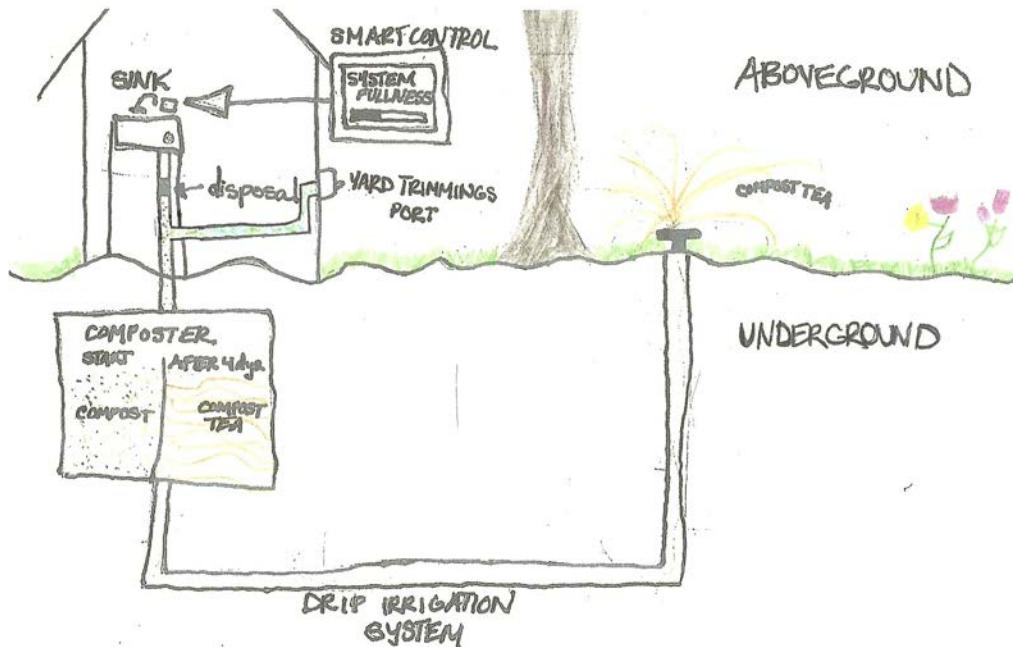 SMART CONTROL
SYSTEM
FULLNESS
SINK
ABOVEGROUND
disposal
YARD TRIMMINGS
PORT
COMPOST TEA
COMPOSTER
START
AFTER 4 dyz
COMPOST
COMPOST
TEA
UNDERGROUND
DRIP IRRIGATION
SYSTEM